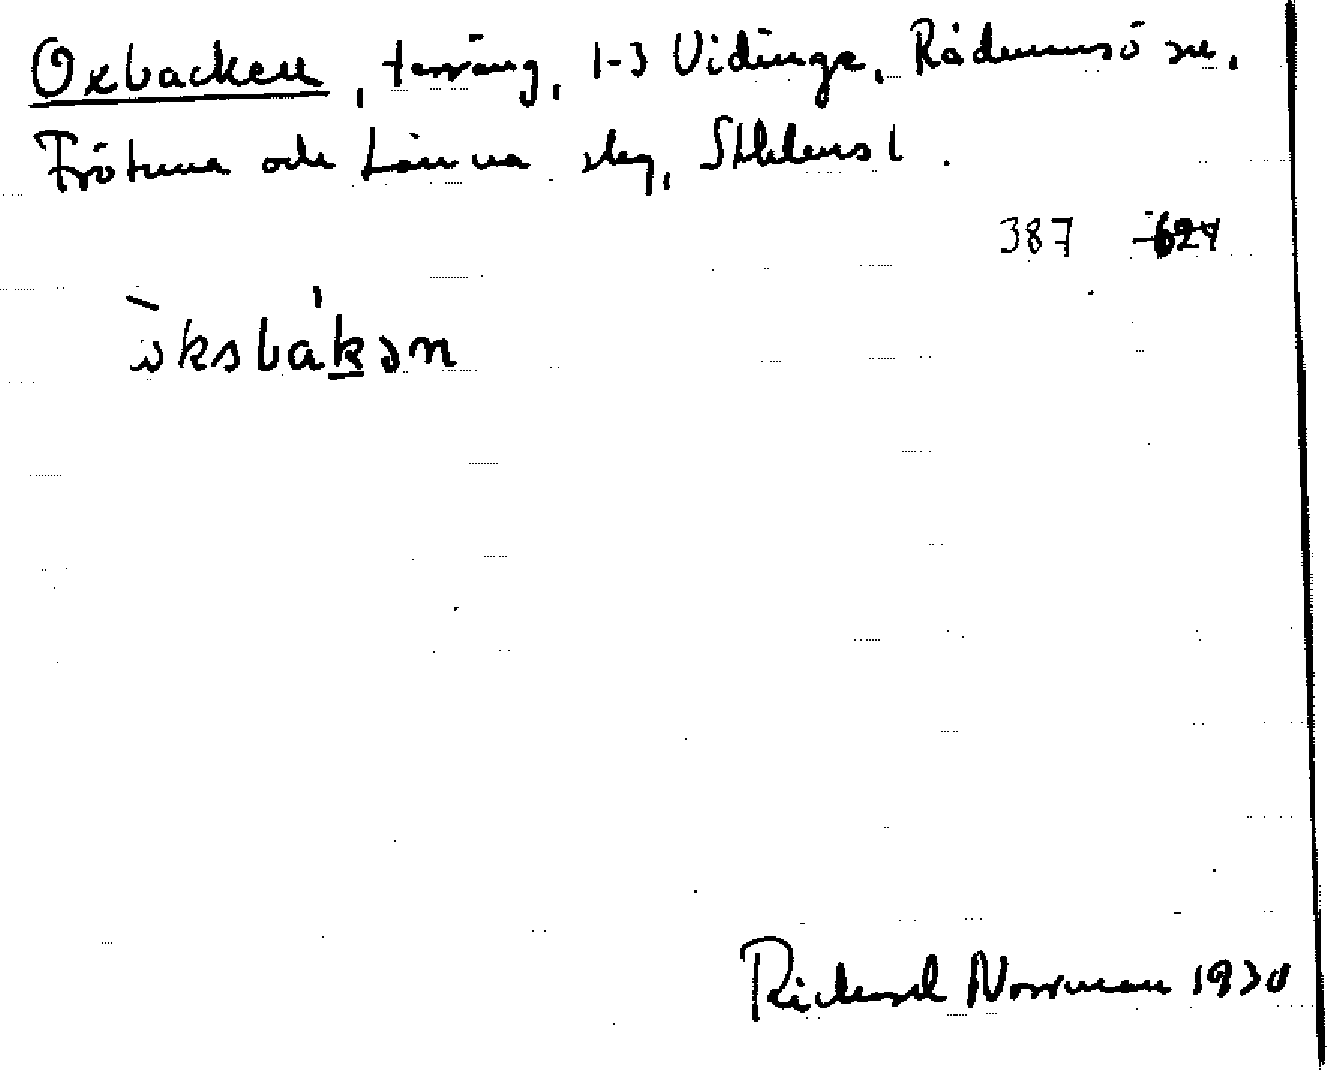 Oxbacken, terräng, 1-3 Vidinge, Rådmansö sn,
Frötuna och Länna slg, Sthlms l.
387 624
òksbák̲ən
Rickard Norrman 1930